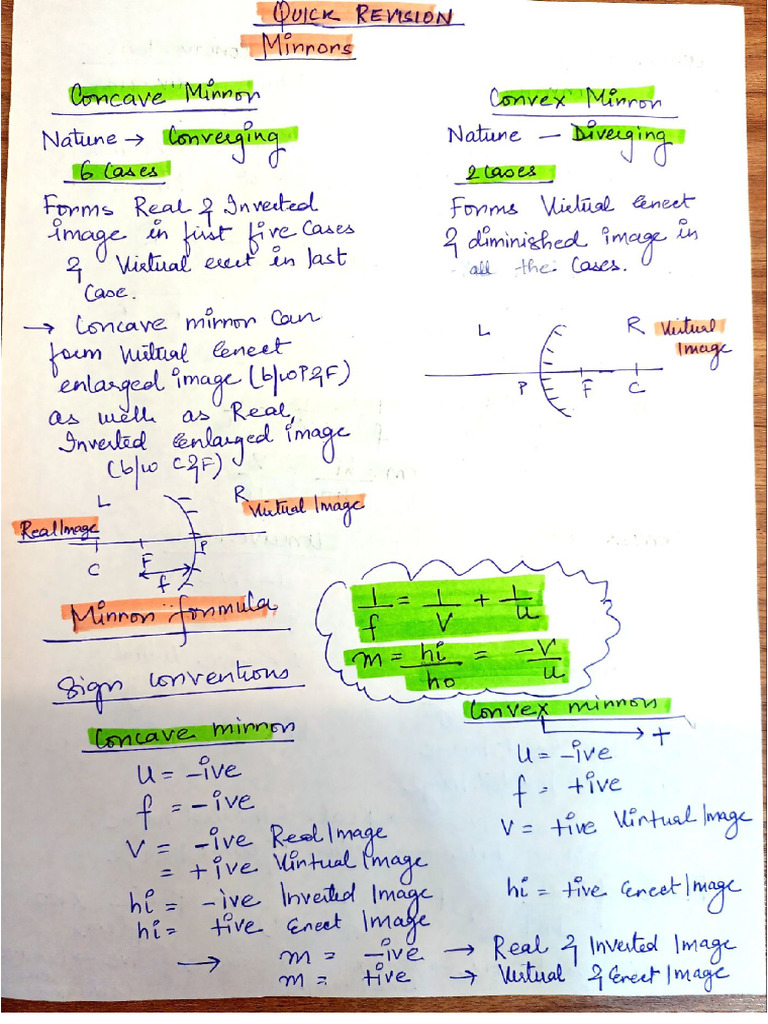 QUICK REVISION
Mirrors
Concave Mirror
Nature → Converging
6 Cases
Forms Real & Inverted
image in first five cases
& Virtual erect in last
Case.
→ Concave mirror can
form virtual erect
enlarged image (b/w P & F)
as well as Real,
Inverted enlarged image
(b/w C & F)
L
R
Virtual Image
Real Image
C
F
P
f
Convex Mirror
Nature — Diverging
2 Cases
Forms Virtual Erect
& diminished image in
all the Cases.
L
R
Virtual
Image
P
F
C
Mirror formula
1/f = 1/v + 1/u
m = hi/ho = -v/u
Sign conventions
Concave mirror
u = -ive
f = -ive
v = -ive Real Image
= +ive Virtual Image
hi = -ive Inverted Image
hi = +ive Erect Image
Convex mirror
+
u = -ive
f = +ive
v = +ive Virtual Image
hi = +ive Erect Image
→ m = -ive → Real & Inverted Image
m = +ive → Virtual & Erect Image